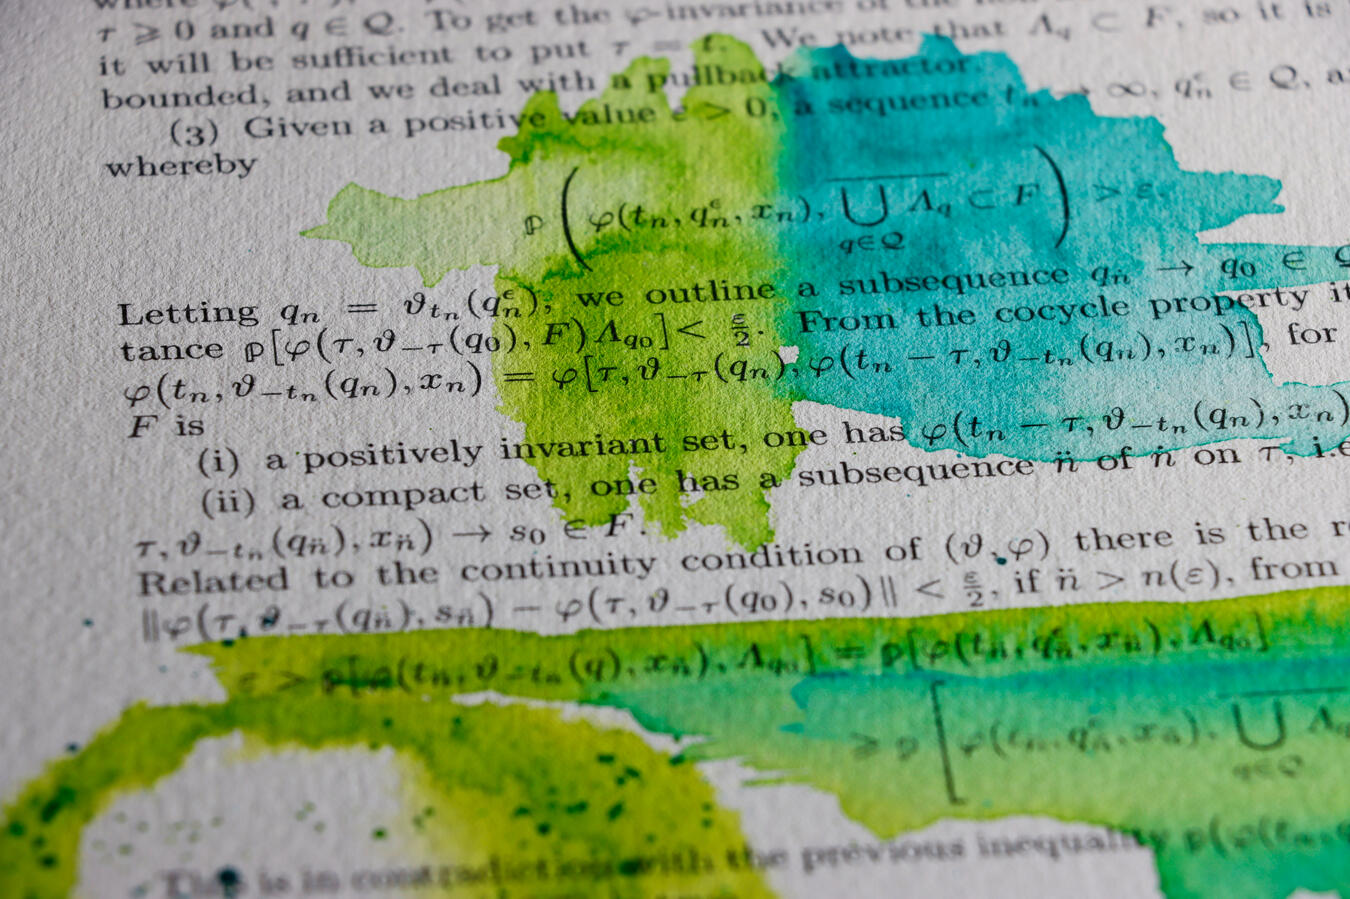 τ ⩾ 0 and q ∈ Q. To get the φ-invariance of the
it will be sufficient to put τ = t. We note that Λ_q ⊂ F, so it is
bounded, and we deal with a pullback attractor.
(3) Given a positive value ε > 0, a sequence t_n → ∞, q_n^ε ∈ Q,
whereby
ℙ(φ(t_n, q_n^ε, x_n), \overline{⋃_{q∈Q} Λ_q} ⊂ F) > ε.
Letting q_n = ϑ_{t_n}(q_n^ε), we outline a subsequence q_{ṅ} → q_0 ∈
tance ℙ[φ(τ, ϑ_{−τ}(q_0), F)Λ_{q_0}] < ε/2. From the cocycle property it
φ(t_n, ϑ_{−t_n}(q_n), x_n) = φ[τ, ϑ_{−τ}(q_n), φ(t_n − τ, ϑ_{−t_n}(q_n), x_n)], for
F is
(i) a positively invariant set, one has φ(t_n − τ, ϑ_{−t_n}(q_n), x_n)
(ii) a compact set, one has a subsequence n̈ of ṅ on τ, i.e
τ, ϑ_{−t_n}(q_{n̈}), x_{n̈}) → s_0 ∈ F.
Related to the continuity condition of (ϑ, φ) there is the
‖φ(τ, ϑ_{−τ}(q_{n̈}), s_{n̈}) − φ(τ, ϑ_{−τ}(q_0), s_0)‖ < ε/2, if n̈ > n(ε), from
ε > ℙ[φ(t_{n̈}, ϑ_{−t_n}(q), x_{n̈}), Λ_{q_0}] = ℙ[φ(t_{n̈}, q_{n̈}^ε, x_{n̈}), Λ_{q_0}]
⩾ ℙ[φ(t_{n̈}, q_{n̈}^ε, x_{n̈}), \overline{⋃_{q∈Q} Λ_q}
This is in contradiction with the previous inequality ℙ(φ(t_n,